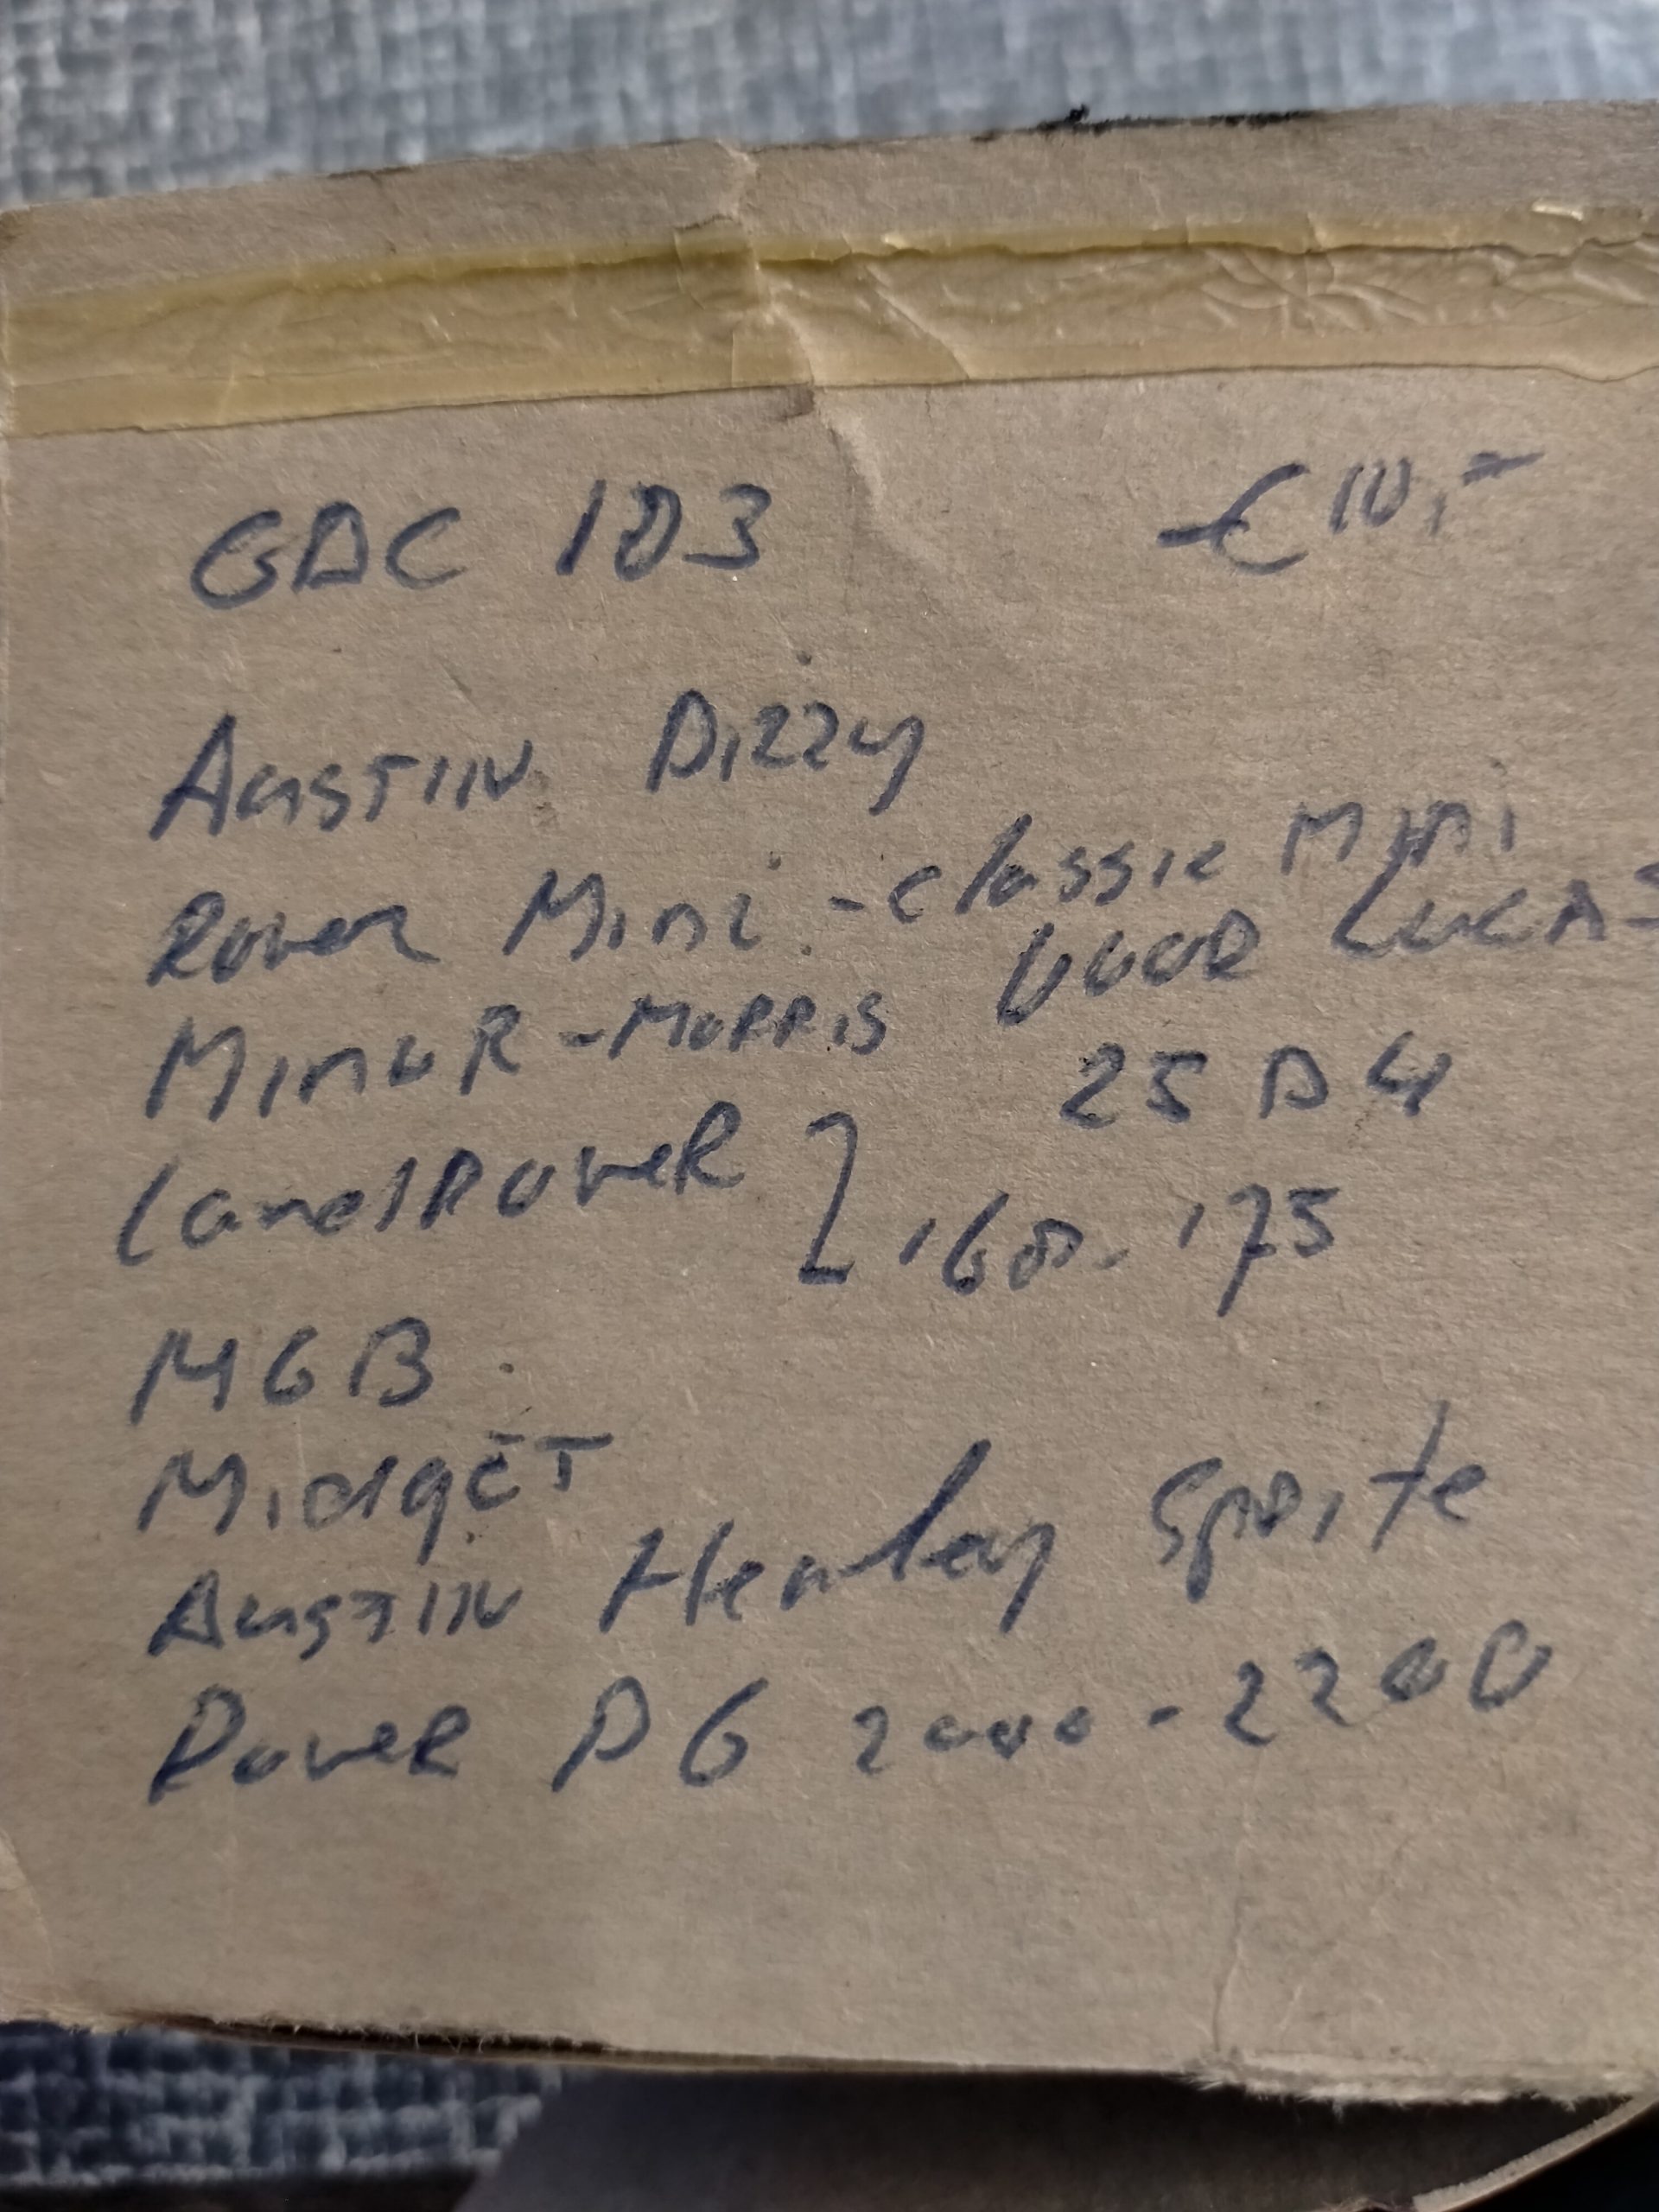 GDC 103 €10,=
Austin Dizzy
Rover Mini - classic Mini
Minor - Morris voor Lucas
25 D 4
LandRover } '60 - '75
MGB
Midget
Austin Healey Sprite
Rover P6 2000 - 2200